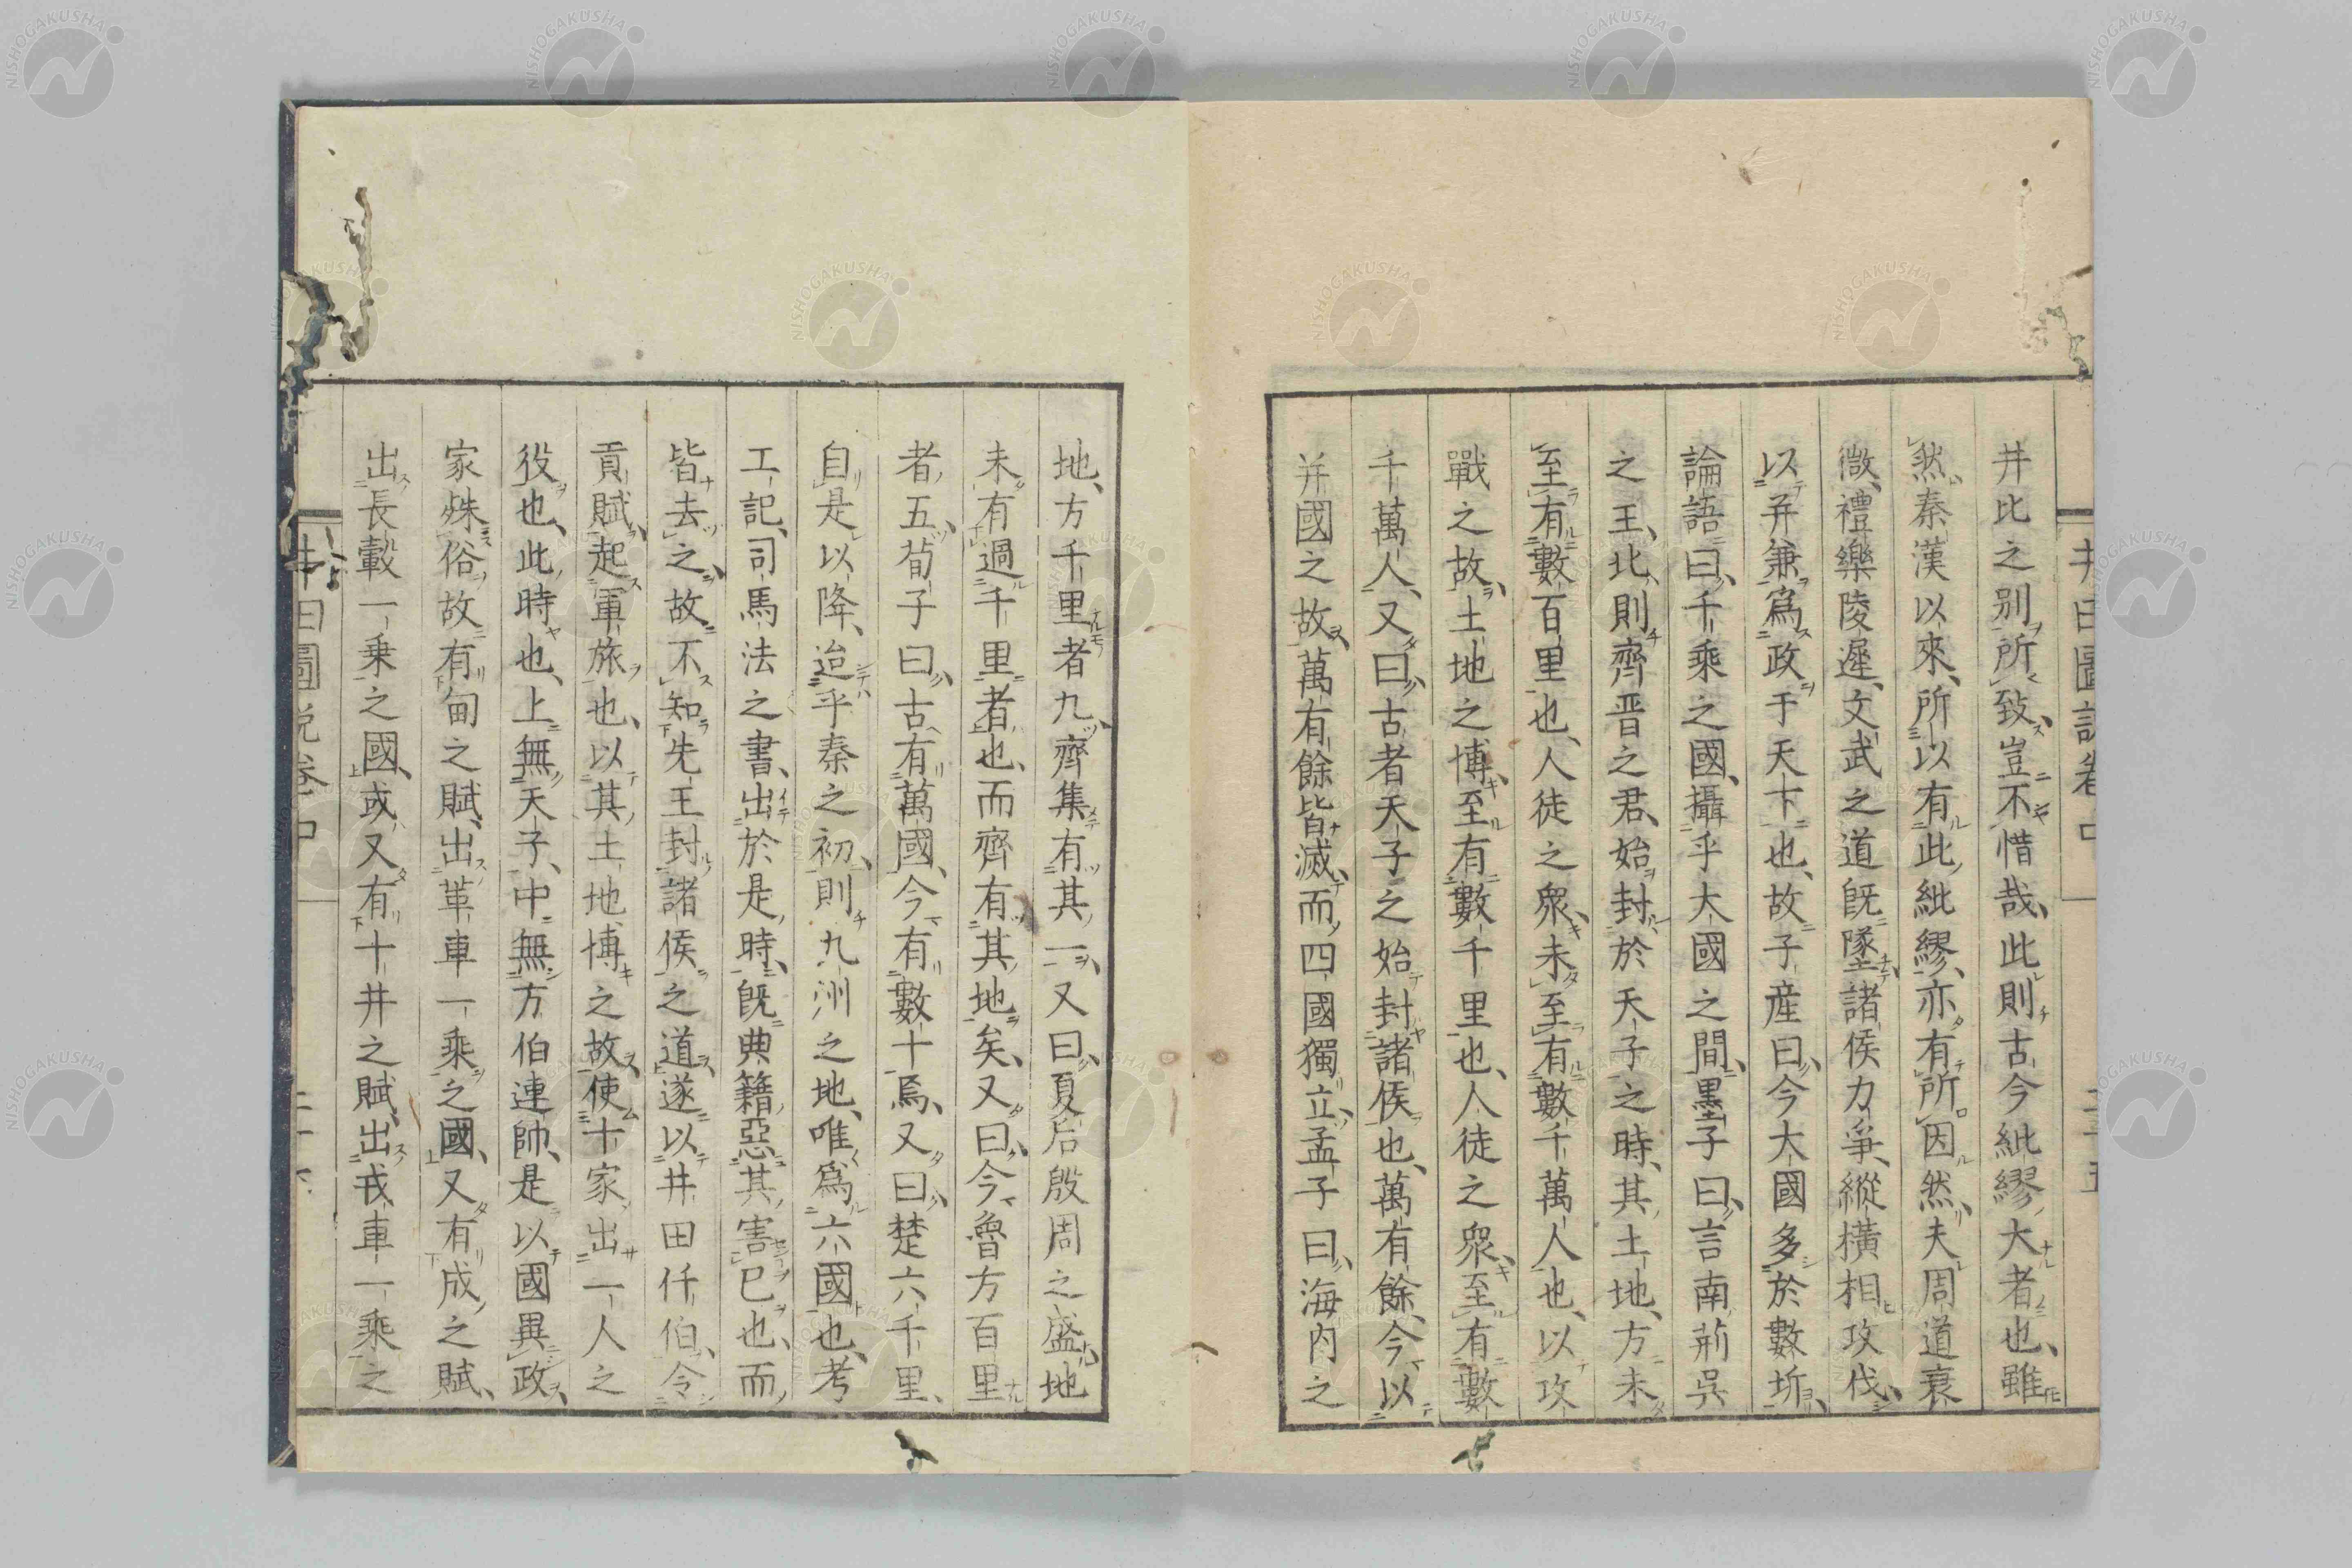 井比之別所致豈不惜哉此則古今紕繆大者也雖
然秦漢以來所以有此紕繆亦有所因然夫周道衰
微禮樂陵遲文武之道既墜諸侯力爭縱橫相攻伐
以并兼爲政于天下也故子産曰今大國多於數圻
論語曰千乘之國攝乎大國之間墨子曰言南荊吳
之王北則齊晋之君始封於天子之時其土地方未
至有數百里也人徒之衆未至有數千萬人也以攻
戰之故土地之博至有數千里也人徒之衆至有數
千萬人又曰古者天子之始封諸侯也萬有餘今以
并國之故萬有餘皆滅而四國獨立孟子曰海内之
地方千里者九齊集有其一又曰夏后殷周之盛地
未有過千里者也而齊有其地矣又曰今魯方百里
者五荀子曰古有萬國今有數十焉又曰楚六千里
自是以降迨乎秦之初則九州之地唯爲六國也考
工記司馬法之書出於是時既典籍惡其害己也而
皆去之故不知先王封諸侯之道遂以井田仟伯令
貢賦起軍旅也以其土地博之故使十家出一人之
役也此時也上無天子中無方伯連帥是以國異政
家殊俗故有甸之賦出革車一乘之國又有成之賦
出長轂一乘之國或又有十井之賦出戎車一乘之
井田圖説卷中
NISHOGAKUSHA